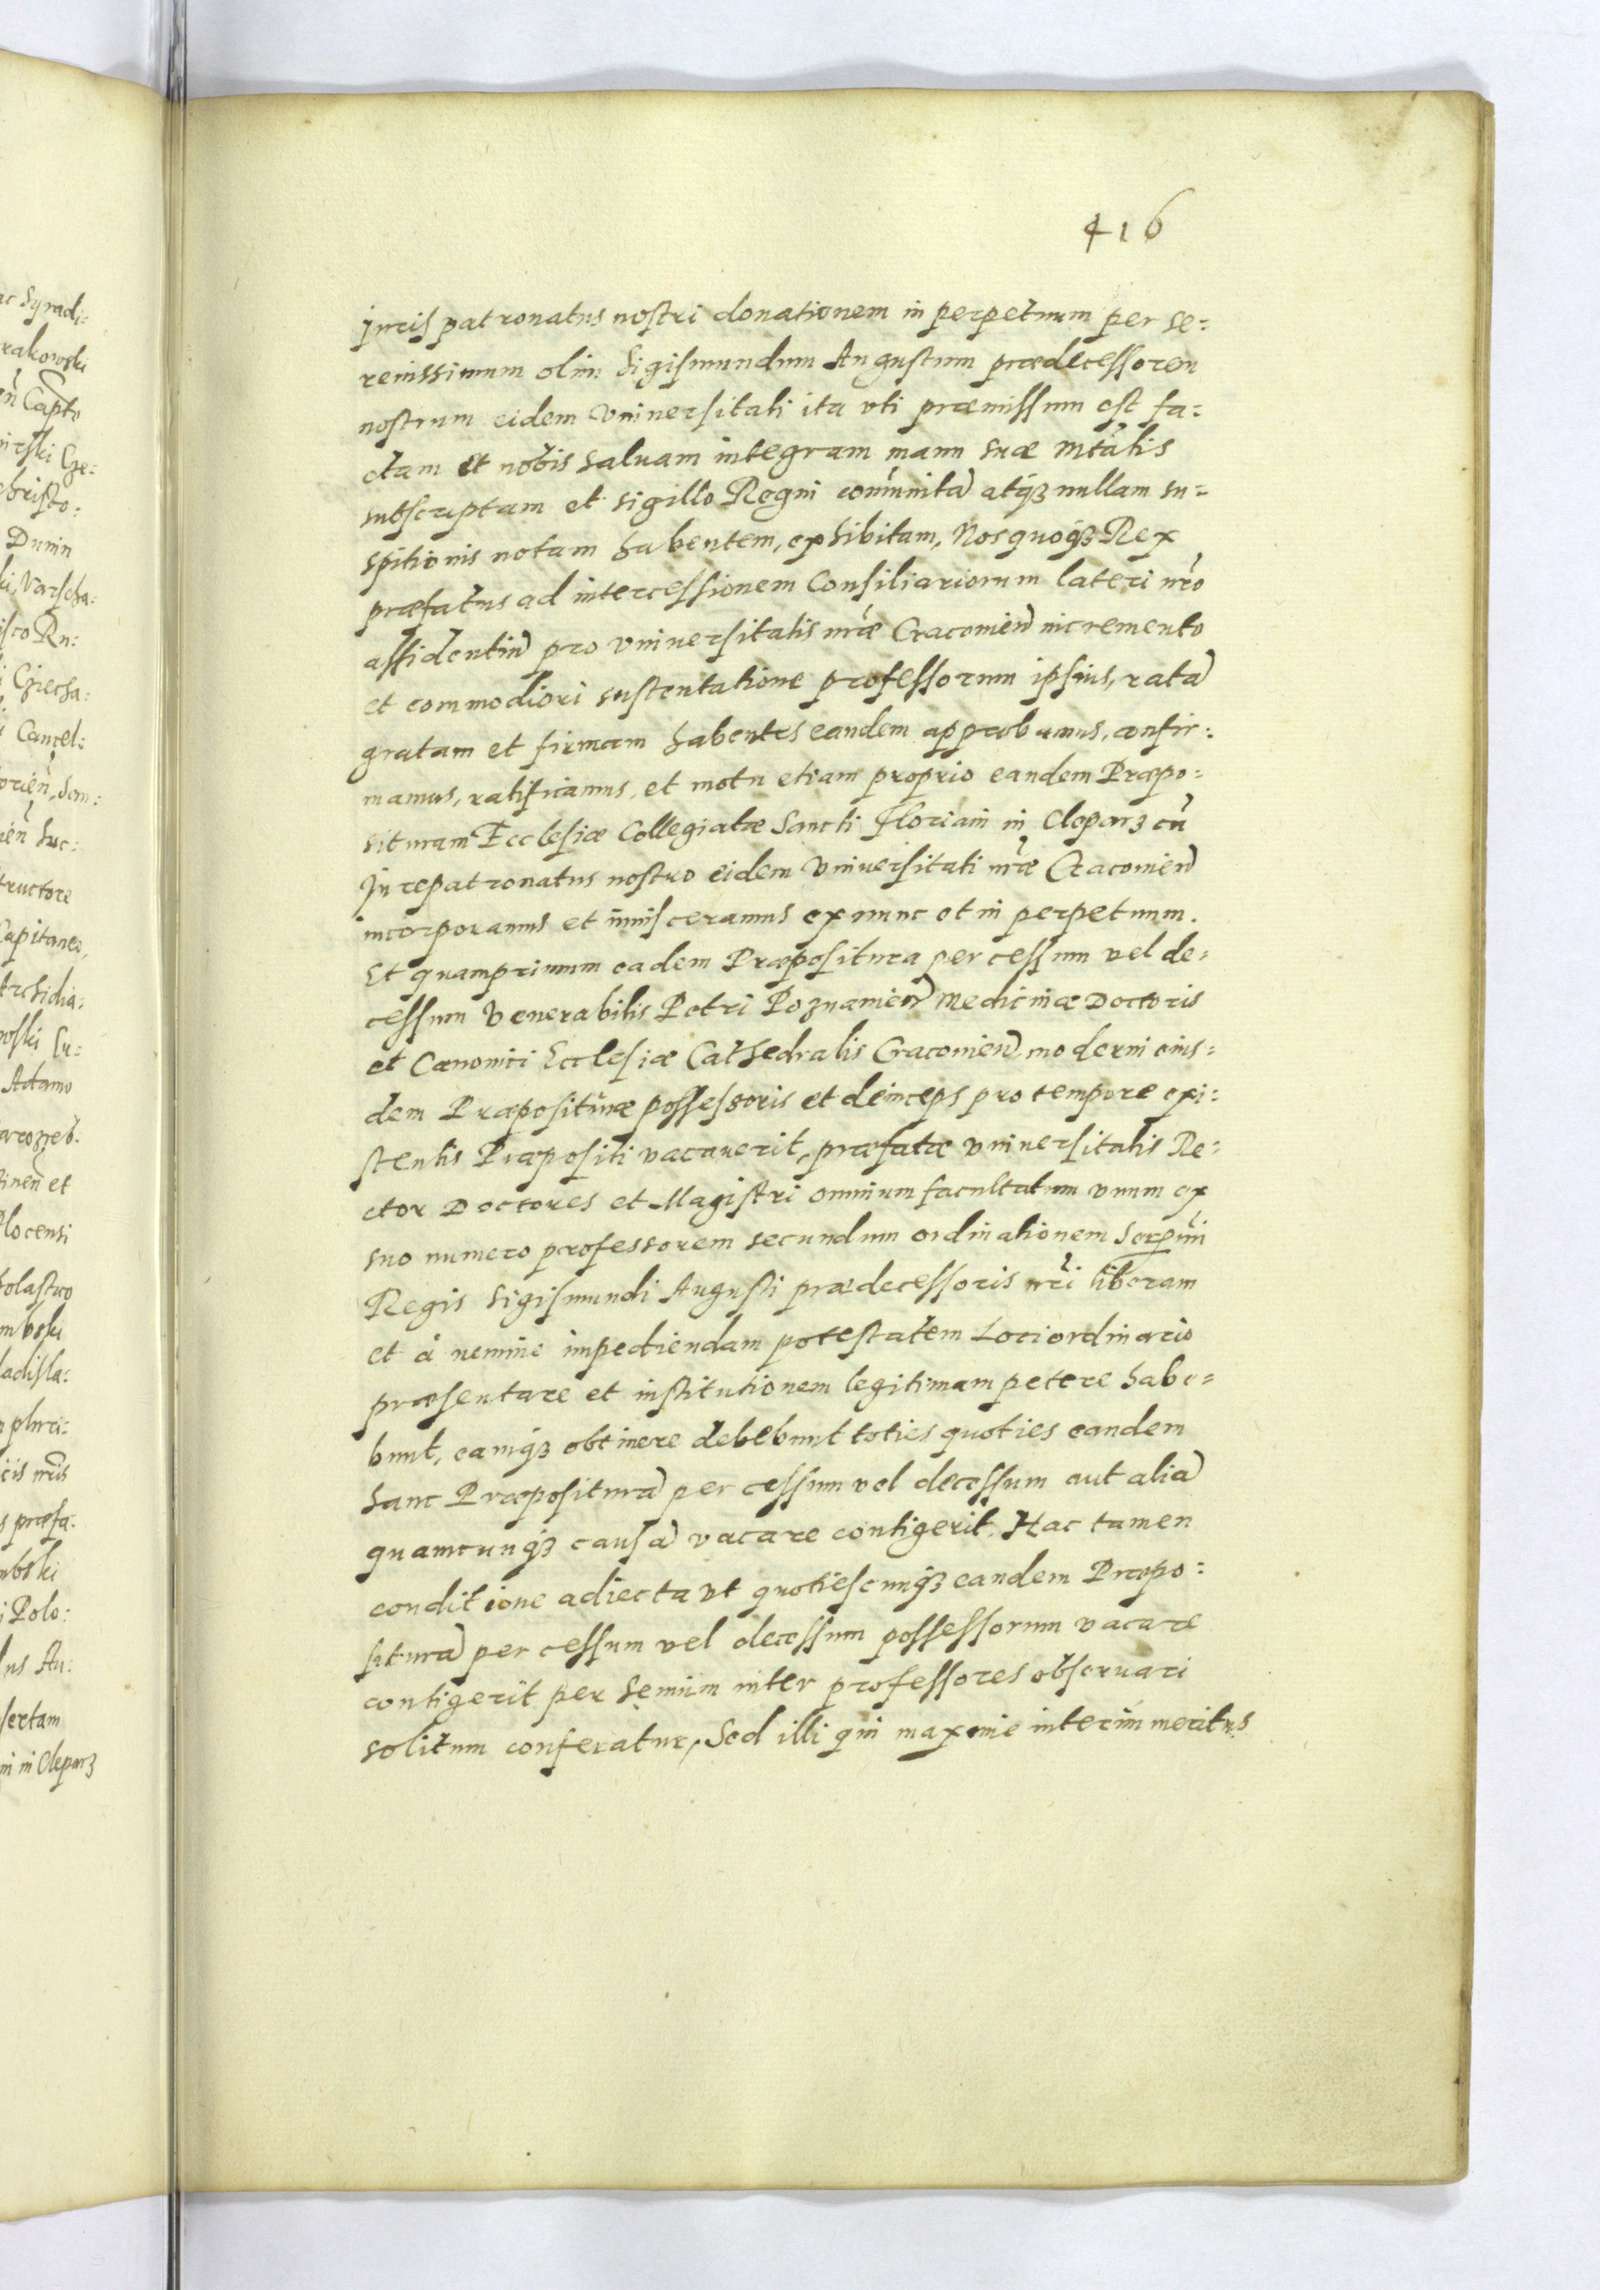 416
Juris patronatus nostri donationem in perpetuum per se-
renissimum olim Sigismundum Augustum prædecessorem
nostrum eidem Vniuersitati ita vti præmissum est fa-
ctam et nobis saluam integram manu suæ Mtatis
subscriptam et sigillo Regni communitã atqȝ nullam su-
spitionis notam habentem, exhibitam, Nos quoqȝ Rex
præfatus ad intercessionem Consiliariorum lateri nro
assidentiũ pro vniuersitatis nræ Cracouieñ incremento
et commodiori sustentatione professorum ipsius, ratã
gratam et firmam habentes eandem approbamus, confir-
mamus, ratificamus, et motu etiam proprio eandem Præpo-
situram Ecclesiæ Collegiatæ Sancti Floriani in Cleparz cũ
Jurepatronatus nostro eidem Vniuersitati nræ Cracouieñ
incorporamus et inuisceramus ex nunc et in perpetuum.
Et quamprimum eadem Præpositura per cessum vel de-
cessum Venerabilis Petri Poznanieñ Medicinæ Doctoris
et Canonici Ecclesiæ Cathedralis Cracouieñ moderni eius-
dem Præposituræ possessoris et deinceps pro tempore exi-
stentis Præpositi vacauerit, præfatæ vniuersitatis Re-
ctor Doctores et Magistri omnium facultatum vnum ex
suo numero professorem secundum ordinationem Serenmi
Regis Sigismundi Augusti prædecessoris nri liberam
et à nemine impediendam potestatem Loci ordinario
præsentare et institutionem legitimam petere habe-
bunt, eamqȝ obtinere debebunt toties quoties eandem
hanc Præpositurã per cessum vel decessum aut aliã
quamcunqȝ causã vacare contigerit. Hac tamen
conditione adiecta vt quotiescunqȝ eandem Præpo-
siturã per cessum vel decessum possessorum vacare
contigerit per senium inter professores obseruari
solitum conferatur, Sed illi qui maxime interim meritus
ac Syradi-
rakowski
Capto
Christo-
Dunin
ki, Varscha-
isco Ru-
Cancel-
tructore
Capitaneo,
Archidia-
Adamo
tineñ et
Plocensi
holastico
mbski
ladisla-
n pluri-
cis nris
s præfa-
mbski
i Polo-
lus Au-
sertam
ni in Cleparz